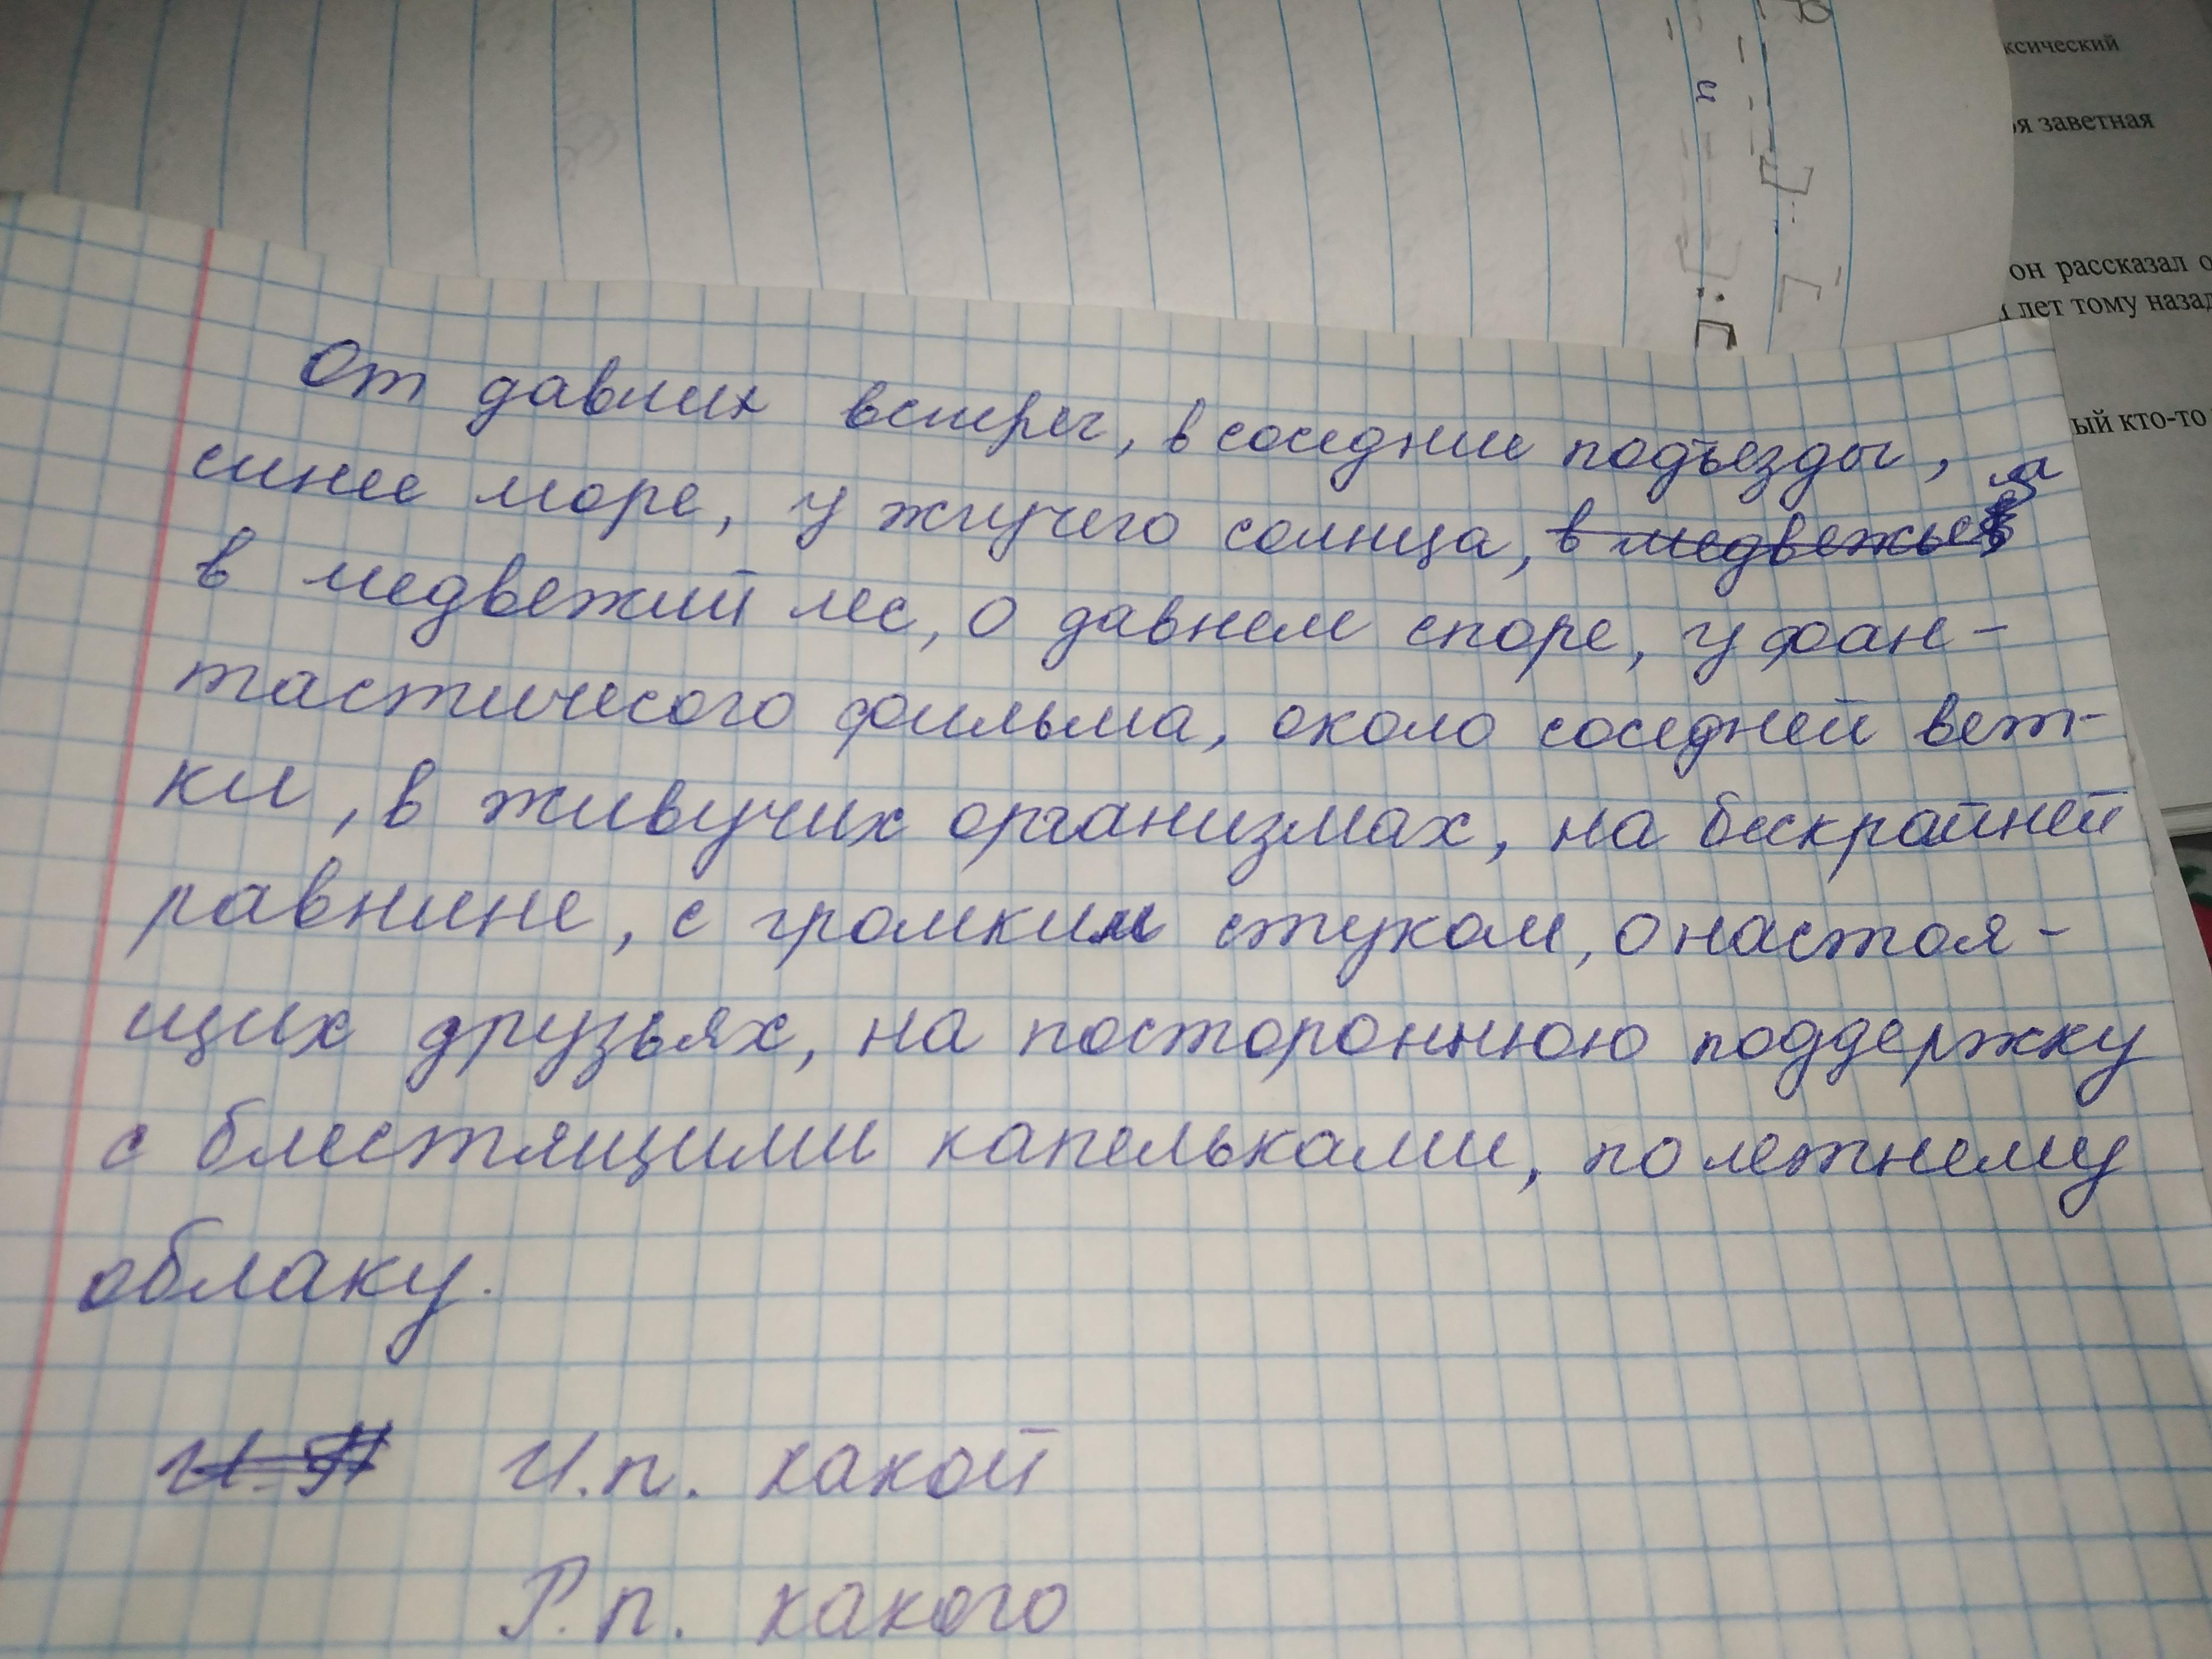 ксический
я заветная
он рассказал о
лет тому назад
ый кто-то
и
От давних встреч, в соседние подъезды, за
синее море, у жгучего солнца,
в медвежий лес, о давнем споре, у фан-
тастичесого фильма, около соседней вет-
ки, в живучих организмах, на бескрайней
равнине, с громким стуком, о настоя-
щих друзьях, на постороннюю поддержку
с блестящими капельками, по летнему
облаку.
И.п. какой
Р.п. какого